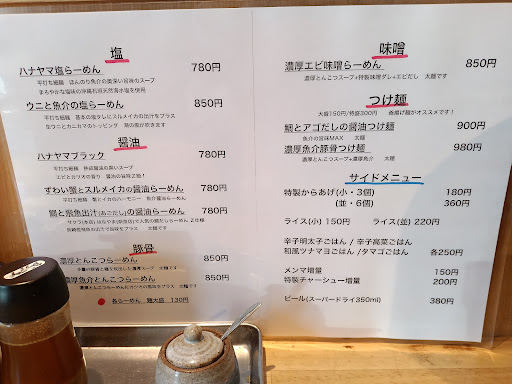 塩
ハナヤマ塩らーめん 780円
平打ち細麺 ほんのり魚介の奥深い旨味のスープ
まろやかな塩味の沖縄石垣天然海水塩を使用
ウニと魚介の塩らーめん 850円
平打ち細麺 基本の塩らーめんにスルメイカのだしをプラス
生ウニとカニカマのトッピング 磯の風が吹きます
醤油
ハナヤマブラック 780円
平打ち細麺 熟成醤油の黒いスープ
エビとカツオの香り 醤油の旨味2倍!
ずわい蟹とスルメイカの醤油らーめん 780円
平打ち細麺 蟹とイカのハーモニー 魚介醤油らーめん
鯛と飛魚出汁(あごだし)の醤油らーめん 780円
長崎産飛魚のお出汁で旨味をプラス 太麺です
豚骨
濃厚とんこつらーめん 850円
濃厚魚介とんこつらーめん 850円
濃厚とんこつらーめんにカツオの風味をプラス 太麺です
各らーめん 麺大盛 130円
味噌
濃厚エビ味噌らーめん 850円
濃厚とんこつスープ+特製味噌ダレ+エビだし 太麺です
つけ麺
大盛150円/特盛300円 香揚げ麺がオススメです!
鯛とアゴだしの醤油つけ麺 900円
魚介の旨味MAX 太麺
濃厚魚介豚骨つけ麺 980円
濃厚とんこつスープ+濃厚魚介 太麺
サイドメニュー
特製からあげ(小・3個) 180円
(並・6個) 360円
ライス(小) 150円 ライス(並) 220円
辛子明太子ごはん / 辛子高菜ごはん
和風ツナマヨごはん /タマゴごはん 各250円
メンマ増量 150円
特製チャーシュー増量 200円
ビール(スーパードライ350ml) 380円